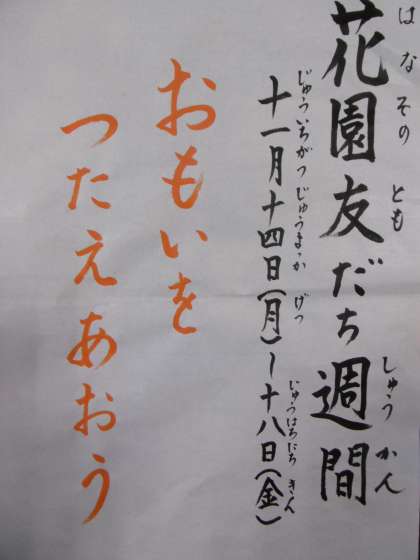 はなぞの とも しゅうかん
花園友だち週間
じゅういちがつじゅうよっか げつ じゅうはちにち きん
十一月十四日(月)~十八日(金)
おもいを
つたえあおう